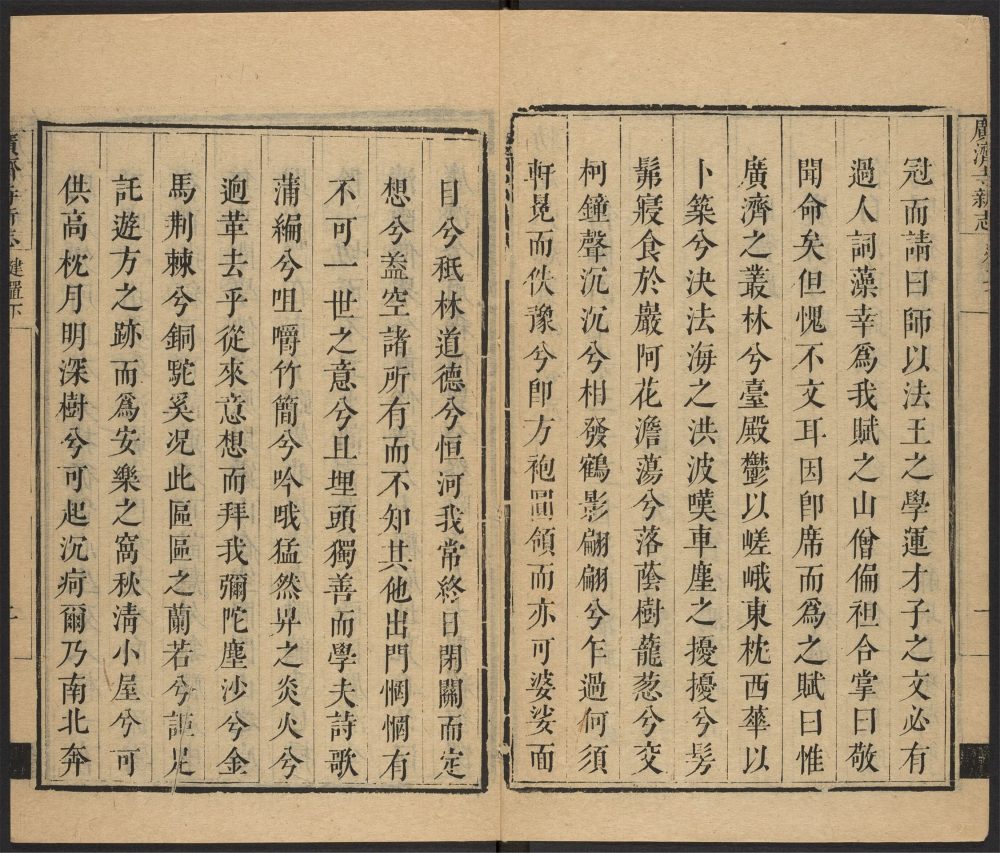 冠而請曰師以法王之學運才子之文必有
過人詞藻幸爲我賦之山僧偏袒合掌曰敬
聞命矣但愧不文耳因卽席而爲之賦曰惟
廣濟之叢林兮臺殿鬱以嵯峨東枕西華以
卜築兮決法海之洪波嘆車塵之擾擾兮髣
髴寢食於巖阿花澹蕩兮落蔭樹蘢葱兮交
柯鐘聲沉沉兮相發鶴影翩翩兮乍過何須
軒冕而佚豫兮卽方袍圓領而亦可婆娑面
目兮秖林道德兮恒河我常終日閉關而定
想兮葢空諸所有而不知其他出門惘惘有
不可一世之意兮且埋頭獨善而學夫詩歌
蒲編兮咀嚼竹簡兮吟哦猛然昇之炎火兮
逈革去乎從來意想而拜我彌陀塵沙兮金
馬荆棘兮銅駝奚况此區區之蘭若兮詎足
託遊方之跡而爲安樂之窩秋淸小屋兮可
供高枕月明深樹兮可起沉疴爾乃南北奔
廣濟寺新志
建置下